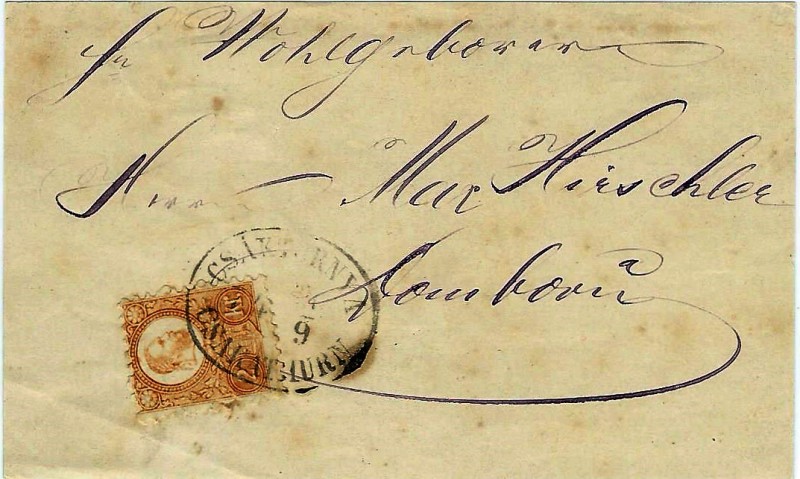 Sr Wohlgeboren
Herrn Max Hirschler
Domboru
CSÁKTORNYA
9
CSAKATHURN